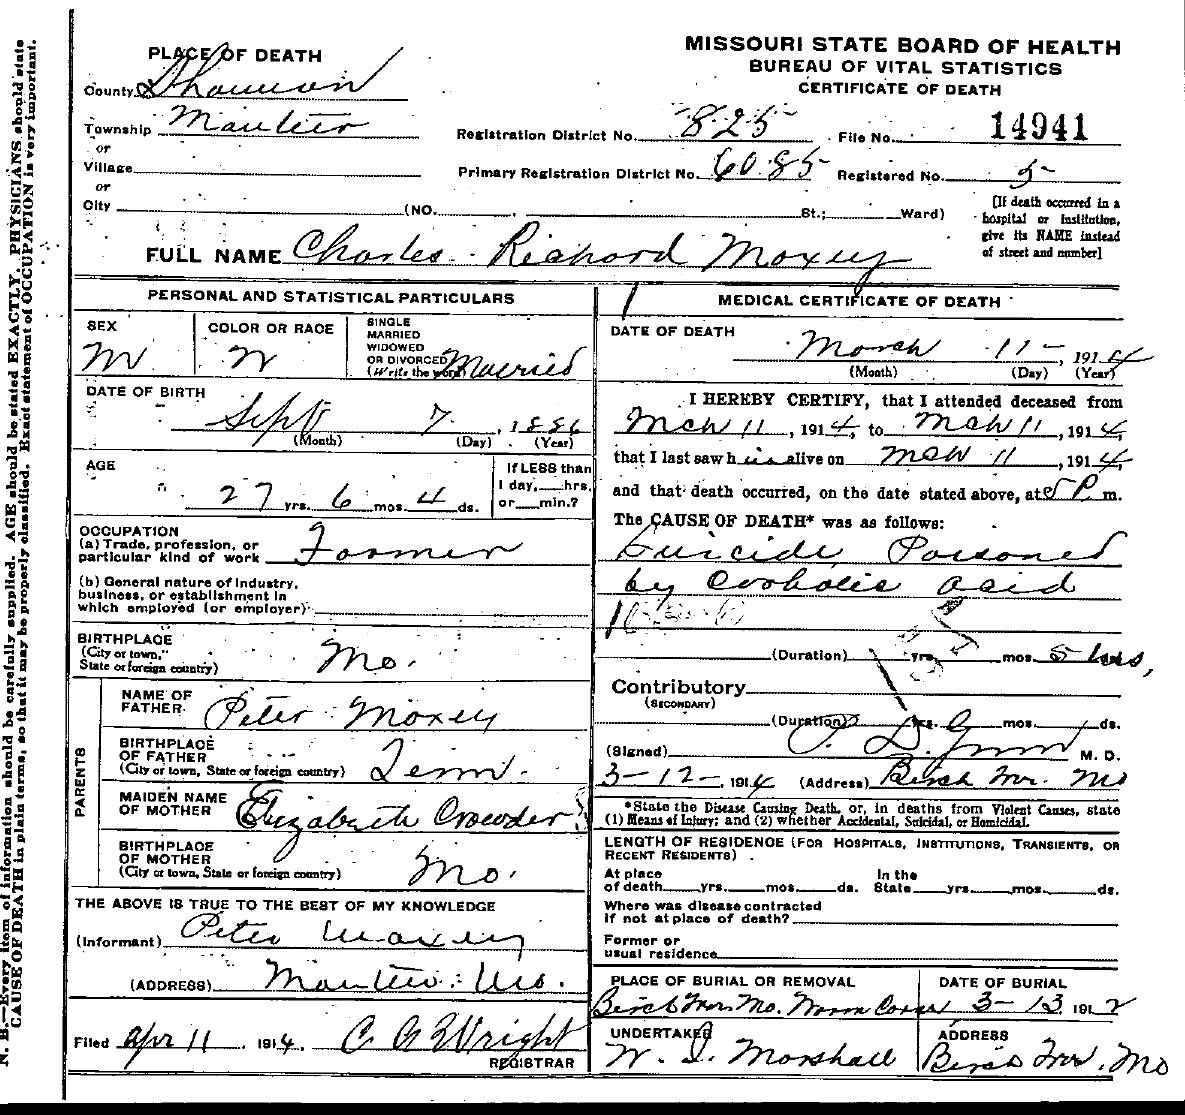 MISSOURI STATE BOARD OF HEALTH
BUREAU OF VITAL STATISTICS
CERTIFICATE OF DEATH
PLACE OF DEATH
County Shannon
Township
or
Village
or
City (NO. St.; Ward)
Registration District No. 825 File No. 14941
Primary Registration District No. 6085 Registered No. 5
[If death occurred in a
hospital or institution,
give its NAME instead
of street and number]
FULL NAME Charles Richard Moxey
PERSONAL AND STATISTICAL PARTICULARS
SEX
M
COLOR OR RACE
W
SINGLE
MARRIED
WIDOWED
OR DIVORCED
(Write the word) Married
DATE OF BIRTH
Sept 7, 1886
(Month) (Day) (Year)
AGE
27 yrs. 6 mos. 4 ds.
If LESS than
1 day, hrs.
or min.?
OCCUPATION
(a) Trade, profession, or
particular kind of work Farmer
(b) General nature of industry,
business, or establishment in
which employed (or employer)
BIRTHPLACE
(City or town,
State or foreign country) Mo.
PARENTS
NAME OF
FATHER Peter Moxey
BIRTHPLACE
OF FATHER
(City or town, State or foreign country) Tenn.
MAIDEN NAME
OF MOTHER Elizabeth Crowder
BIRTHPLACE
OF MOTHER
(City or town, State or foreign country) Mo.
THE ABOVE IS TRUE TO THE BEST OF MY KNOWLEDGE
(Informant) Peter Moxey
(ADDRESS) Mo.
Filed Apr 11, 1914. C A Wright
REGISTRAR
MEDICAL CERTIFICATE OF DEATH
DATE OF DEATH
March 11- 1914
(Month) (Day) (Year)
I HEREBY CERTIFY, that I attended deceased from
Mch 11, 1914, to Mch 11, 1914,
that I last saw him alive on Mch 11, 1914,
and that death occurred, on the date stated above, at 5 P.m.
The CAUSE OF DEATH* was as follows:
Suicide, Poisoned
by Carbolic acid
(Duration) yrs. mos. 5 hrs,
Contributory
(SECONDARY)
(Duration) yrs. mos. ds.
(Signed) M. D.
3-12-, 1914 (Address) Birch Tree. Mo
*State the Disease Causing Death, or, in deaths from Violent Causes, state
(1) Means of Injury; and (2) whether Accidental, Suicidal, or Homicidal.
LENGTH OF RESIDENCE (FOR HOSPITALS, INSTITUTIONS, TRANSIENTS, OR
RECENT RESIDENTS).
At place
of death yrs. mos. ds.
In the
State yrs. mos. ds.
Where was disease contracted
if not at place of death?
Former or
usual residence
PLACE OF BURIAL OR REMOVAL
Birch Tree Mo.
DATE OF BURIAL
3-13 1912
UNDERTAKER
Marshall
ADDRESS
Birch Tree. Mo
N. B.—Every item of information should be carefully supplied. AGE should be stated EXACTLY. PHYSICIANS should state
CAUSE OF DEATH in plain terms, so that it may be properly classified. Exact statement of OCCUPATION is very important.